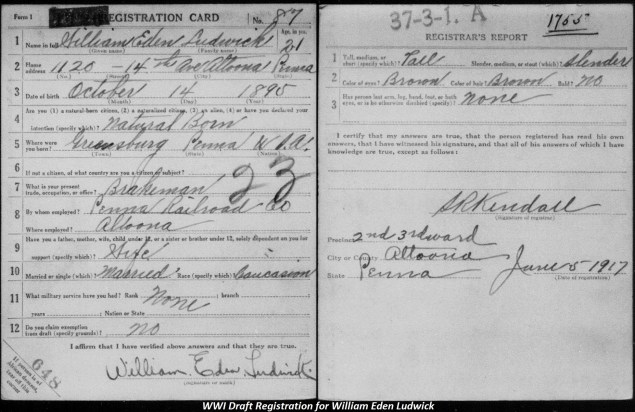 Form 1
REGISTRATION CARD No. 87
1 Name in full William Eden Ludwick Age, in yrs. 21
(Given name) (Family name)
2 Home address 1120-14th Ave Altoona Penna
(No.) (Street) (City) (State)
3 Date of birth October 14 1895
(Month) (Day) (Year)
4 Are you (1) a natural-born citizen, (2) a naturalized citizen, (3) an alien, (4) or have you declared your
intention (specify which)? Natural Born
5 Where were you born? Greensburg Penna U.S.A.
(Town) (State) (Nation)
6 If not a citizen, of what country are you a citizen or subject?
7 What is your present trade, occupation, or office? Brakeman 23
8 By whom employed? Penna Railroad Co
Where employed? Altoona
9 Have you a father, mother, wife, child under 12, or a sister or brother under 12, solely dependent on you for
support (specify which)? Wife
10 Married or single (which)? Married Race (specify which)? Caucasion
11 What military service have you had? Rank None branch
years Nation or State
12 Do you claim exemption from draft (specify grounds)? No
I affirm that I have verified above answers and that they are true.
William Eden Ludwick
(Signature or mark)
648
37-3-1. A
1755
REGISTRAR'S REPORT
1 Tall, medium, or short (specify which)? Tall Slender, medium, or stout (which)? Slender
2 Color of eyes? Brown Color of hair? Brown Bald? No
3 Has person lost arm, leg, hand, foot, or both eyes, or is he otherwise disabled (specify)? None
I certify that my answers are true, that the person registered has read his own
answers, that I have witnessed his signature, and that all of his answers of which I have
knowledge are true, except as follows:
S.R. Kendall
(Signature of registrar)
Precinct 2nd 3rd ward
City or County Altoona
State Penna June 5 1917
(Date of registration)
WWI Draft Registration for William Eden Ludwick